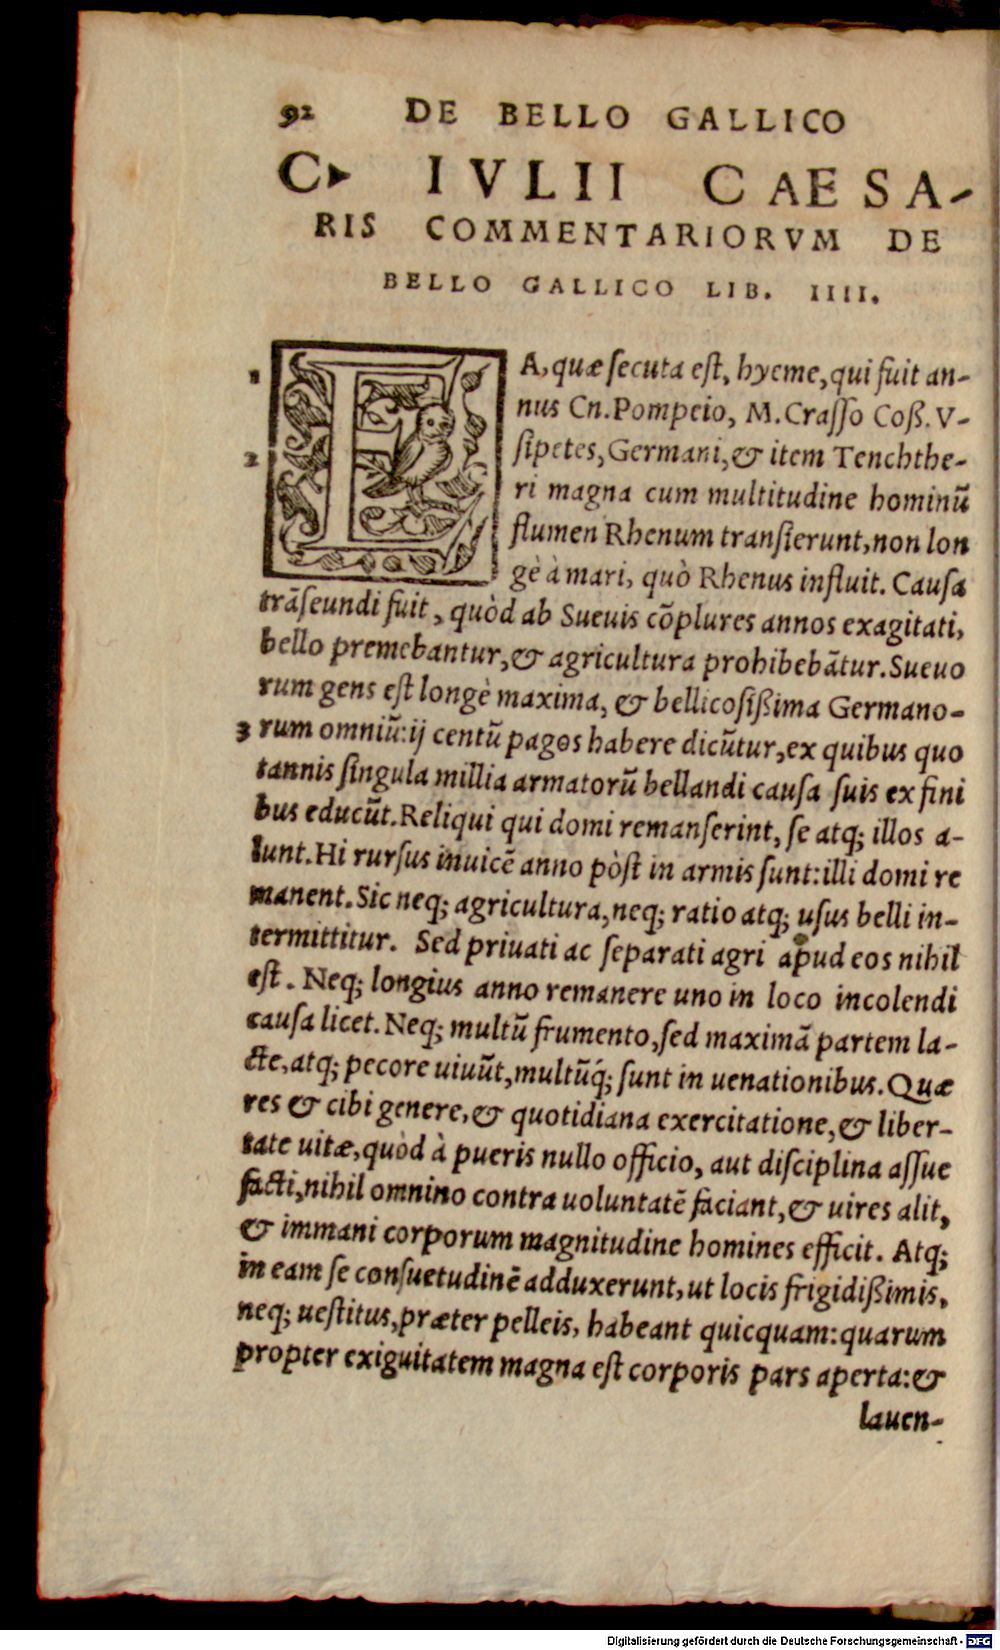 92 DE BELLO GALLICO
C. IVLII CAESA-
RIS COMMENTARIORVM DE
BELLO GALLICO LIB. IIII.
1 EA, quæ secuta est, hyeme, qui fuit an-
nus Cn. Pompeio, M. Crasso Coß. V-
2 sipetes, Germani, & item Tenchthe-
ri magna cum multitudine hominū
flumen Rhenum transierunt, non lon
gè à mari, quò Rhenus influit. Causa
trāseundi fuit, quòd ab Sueuis cōplures annos exagitati,
bello premebantur, & agricultura prohibebātur. Sueuo
rum gens est longè maxima, & bellicosißima Germano-
3 rum omniū: ij centū pagos habere dicūtur, ex quibus quo
tannis singula millia armatorū bellandi causa suis ex fini
bus educūt. Reliqui qui domi remanserint, se atq; illos a-
lunt. Hi rursus inuicē anno pòst in armis sunt: illi domi re
manent. Sic neq; agricultura, neq; ratio atq; usus belli in-
termittitur. Sed priuati ac separati agri apud eos nihil
est. Neq; longius anno remanere uno in loco incolendi
causa licet. Neq; multū frumento, sed maximā partem la-
cte, atq; pecore uiuūt, multūq́; sunt in uenationibus. Quæ
res & cibi genere, & quotidiana exercitatione, & liber-
tate uitæ, quòd à pueris nullo officio, aut disciplina assue
facti, nihil omnino contra uoluntatē faciant, & uires alit,
& immani corporum magnitudine homines efficit. Atq;
in eam se consuetudinē adduxerunt, ut locis frigidißimis,
neq; uestitus, præter pelleis, habeant quicquam: quarum
propter exiguitatem magna est corporis pars aperta: &
lauen-
Digitalisierung gefördert durch die Deutsche Forschungsgemeinschaft - DFG